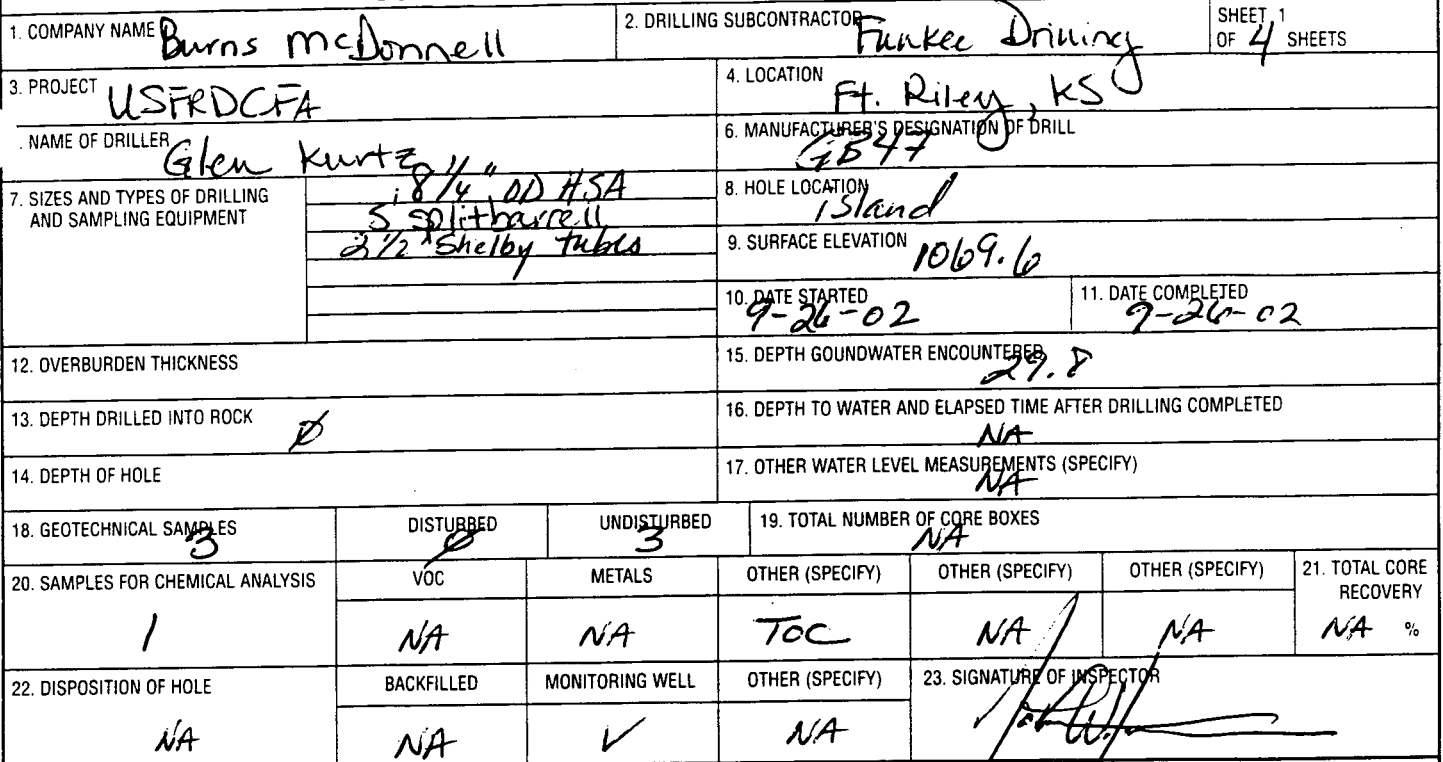 1. COMPANY NAME Burns McDonnell
2. DRILLING SUBCONTRACTOR Funkee Drilling
SHEET 1
OF 4 SHEETS
3. PROJECT USFRDCFA
4. LOCATION Ft. Riley, KS
. NAME OF DRILLER Glen Kurtz
6. MANUFACTURER'S DESIGNATION OF DRILL
7. SIZES AND TYPES OF DRILLING
AND SAMPLING EQUIPMENT
8 1/4" OD HSA
5' splitbarrell
2 1/2" Shelby tubes
8. HOLE LOCATION island
9. SURFACE ELEVATION 1069.6
10. DATE STARTED
9-26-02
11. DATE COMPLETED
9-26-02
12. OVERBURDEN THICKNESS
15. DEPTH GOUNDWATER ENCOUNTERED
29.8
13. DEPTH DRILLED INTO ROCK Ø
16. DEPTH TO WATER AND ELAPSED TIME AFTER DRILLING COMPLETED
NA
14. DEPTH OF HOLE
17. OTHER WATER LEVEL MEASUREMENTS (SPECIFY)
NA
18. GEOTECHNICAL SAMPLES
3
DISTURBED
Ø
UNDISTURBED
3
19. TOTAL NUMBER OF CORE BOXES
NA
20. SAMPLES FOR CHEMICAL ANALYSIS
1
VOC
NA
METALS
NA
OTHER (SPECIFY)
TOC
OTHER (SPECIFY)
NA
OTHER (SPECIFY)
NA
21. TOTAL CORE
RECOVERY
NA %
22. DISPOSITION OF HOLE
NA
BACKFILLED
NA
MONITORING WELL
✓
OTHER (SPECIFY)
NA
23. SIGNATURE OF INSPECTOR